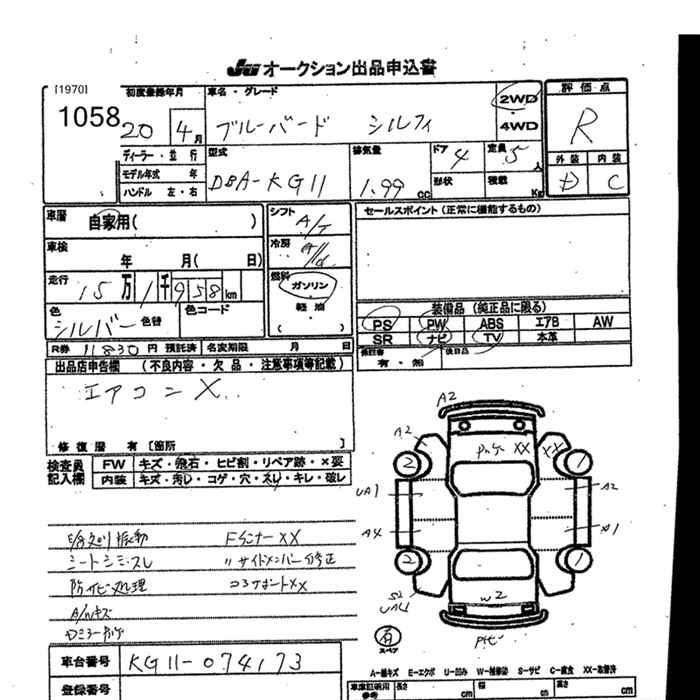 JU オークション出品申込書
[1970]
1058
初度登録年月
20 4月
車名・グレード
ブルーバード シルフィ
2WD
・
4WD
評価点
R
外装 内装
D C
ディーラー・並行
モデル年式 年
ハンドル 左・右
型式
DBA-KG11
排気量
1.99 cc
ドア
4
定員
5 人
形状
積載
Kg
車歴
自家用( )
シフト
A/T
セールスポイント (正常に機能するもの)
車検
年 月( 日)
冷房
A/C
走行
15万1千958km
燃料
ガソリン
・
軽油
( )
色
シルバー 色替
色コード
装備品 (純正品に限る)
PS PW ABS エアB AW
SR ナビ TV 本革
R券 11830円 預託済 名変期限 月 日
保証書
有・無
後日品
出品店申告欄 (不良内容・欠品・注意事項等記載)
エアコン X
修復歴 有 [箇所 ]
検査員
記入欄
FW キズ・飛石・ヒビ割・リペア跡・×要
内装 キズ・汚レ・コゲ・穴・スレ・キレ・破レ
振動
シートシミ・スレ
防サビ処理
A/Wキズ
FインナーXX
〃サイドメンバー修正
コアサポートXX
A2
A2
XX
XX
2
1
UA1
A2
A4
A1
2
1
S2
UA1
W2
有
スペア
A-線キズ E-エクボ U-凹み W-補修跡 S-サビ C-腐食 XX-取替済
車台番号 KG11-074173
登録番号
車庫証明用
参考
長さ cm
幅 cm
高さ cm